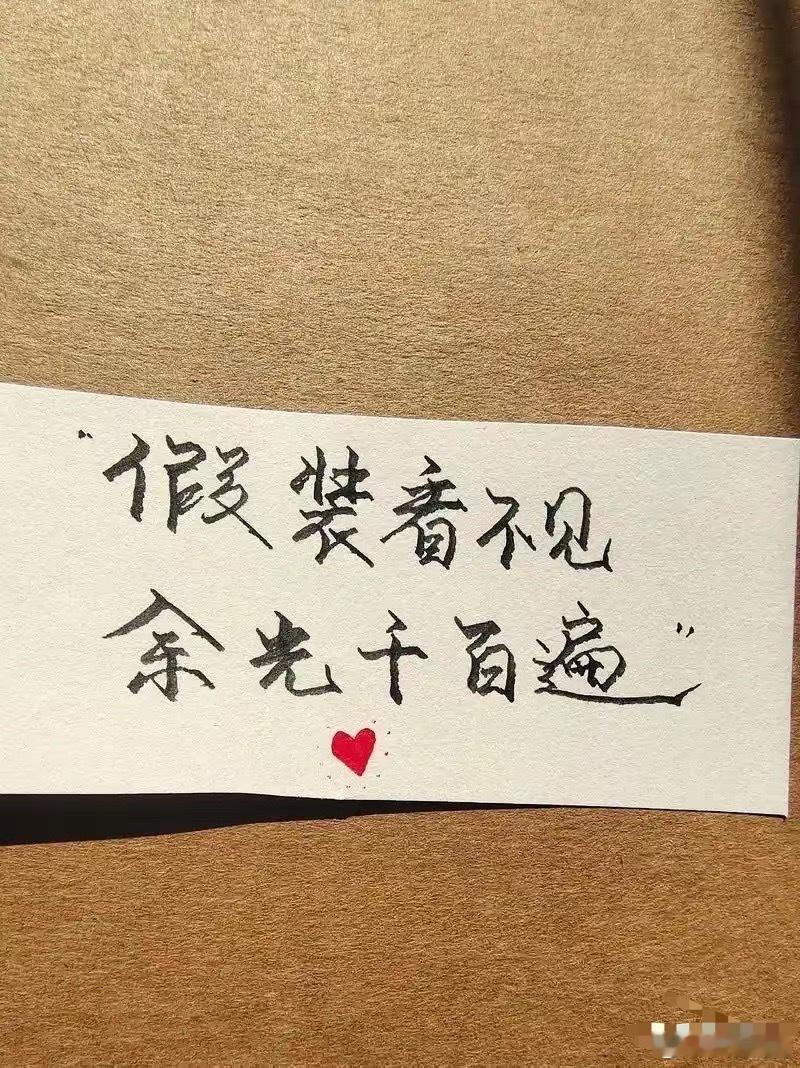 "假装看不见
余光千百遍"